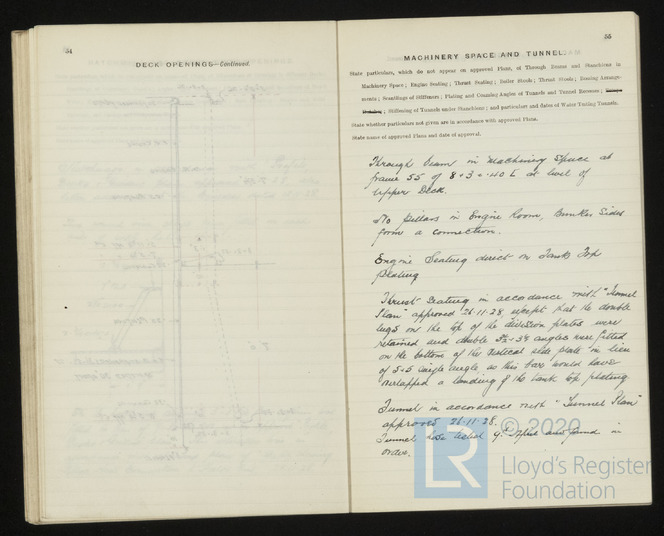 54
DECK OPENINGS—Continued.
55
MACHINERY SPACE AND TUNNEL.
State particulars, which do not appear on approved Plans, of Through Beams and Stanchions in
Machinery Space; Engine Seating; Thrust Seating; Boiler Stools; Thrust Stools; Boating Arrange-
ments; Scantlings of Stiffeners; Plating and Connding Angles of Tunnels and Tunnel Recesses;
; Stiffening of Tunnels under Stanchions; and particulars and dates of Water Testing Tunnels.
State whether particulars not given are in accordance with approved Plans.
State name of approved Plans and date of approval.
Through beam in Machinery Space at
frame 55 of 8 × 3 × .40 [ at level of
Upper Deck.
No pillars in Engine Room, Bunker Sides
form a connection.
Engine Seating direct on Tank Top
plating
Thrust Seating in accordance with "Tunnel
Plan" approved 26.11.28, except that the double
lugs on the top of the division plates were
retained and double angles were fitted
on the bottom of the vertical side plate in lieu
of 5 × 5 single angle as this bar would have
overlapped a landing of the tank top plating
Tunnel in accordance with "Tunnel Plan"
approved 26.11.28.
Tunnel hose tested and found in
order.
© 2020
LR
Lloyd's Register
Foundation